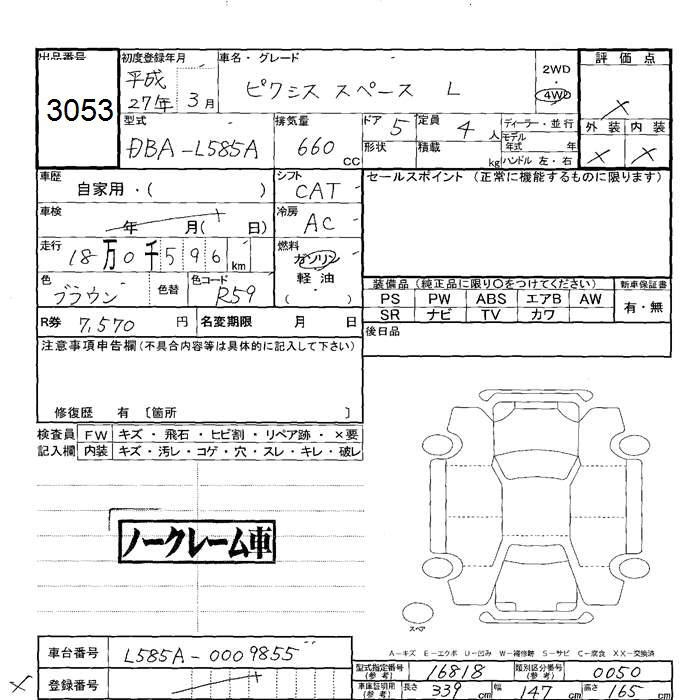 出品番号 初度登録年月 車名・グレード 2WD 評価点
3053 平成27年3月 ピクシス スペース L 4WD ×
型式 排気量 ドア 5 定員 4人 ディーラー・並行 外装 内装
DBA-L585A 660cc 形状 積載 kg モデル年式 年式 ハンドル 左・右 × ×
車歴 自家用・( ) シフト CAT セールスポイント (正常に機能するものに限ります)
車検 年 月( 日) 冷房 AC
走行 18万0千596km 燃料 ガソリン 軽油 ( )
色 ブラウン 色替 色コード R59
装備品 (純正品に限り○をつけてください) 新車保証書
PS PW ABS エアB AW 有・無
SR ナビ TV カワ
R券 7,570円 名変期限 月 日 後日品
注意事項申告欄(不具合内容等は具体的に記入して下さい)
修復歴 有 〔箇所 〕
検査員 FW キズ・飛石・ヒビ割・リペア跡・×要
記入欄 内装 キズ・汚レ・コゲ・穴・スレ・キレ・破レ
ノークレーム車
スペア
A－キズ E－エクボ U－凹み W－補修跡 S－サビ C－腐食 XX－交換済
車台番号 L585A-0009855
型式指定番号(参考) 16818 類別区分番号(参考) 0050
× 登録番号
車庫証明用(参考) 長さ 339cm 幅 147cm 高さ 165cm